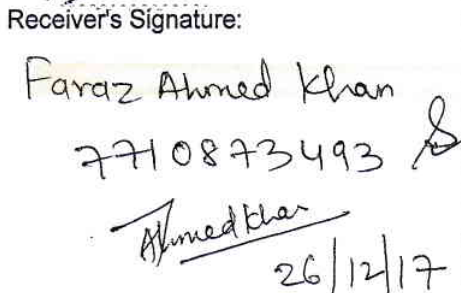 Receiver's Signature:
Faraz Ahmed Khan
7710873493
Ahmed Khan
26/12/17